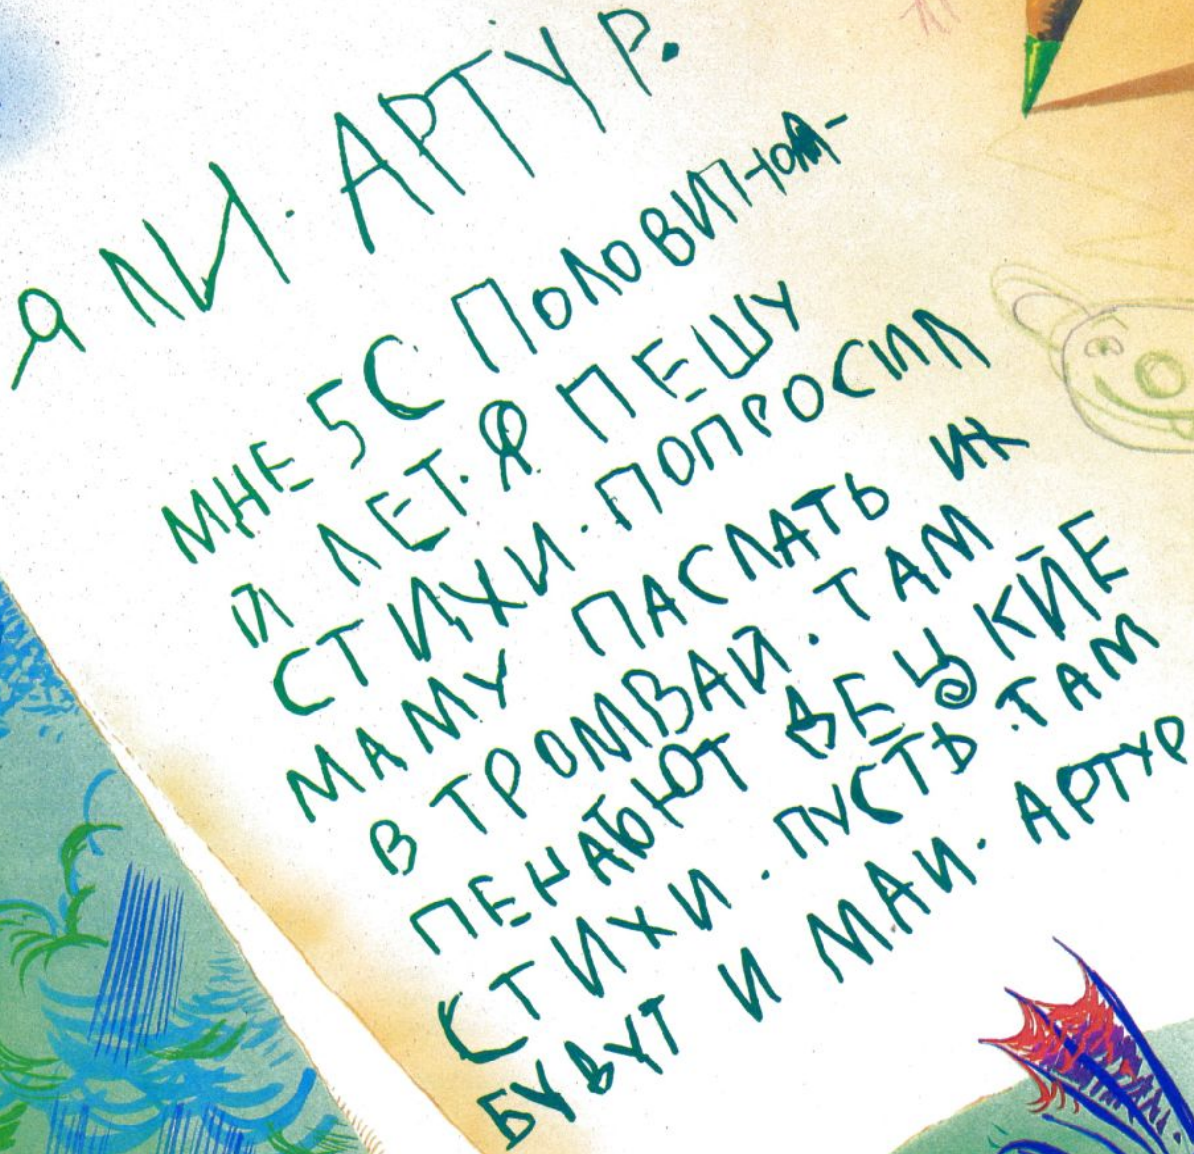 Я ЛИ. АРТУР.
МНЕ 5 С ПОЛОВИНОЙ-
Й ЛЕТ. Я ПЕШУ
СТИХИ. ПОПРОСИЛ
МАМУ ПАСЛАТЬ ИХ
В ТРОМВАЙ. ТАМ
ПЕНАБЮТ ДЕЦКИЕ
СТИХИ. ПУСТЬ ТАМ
БУДУТ И МАИ. АРТУР